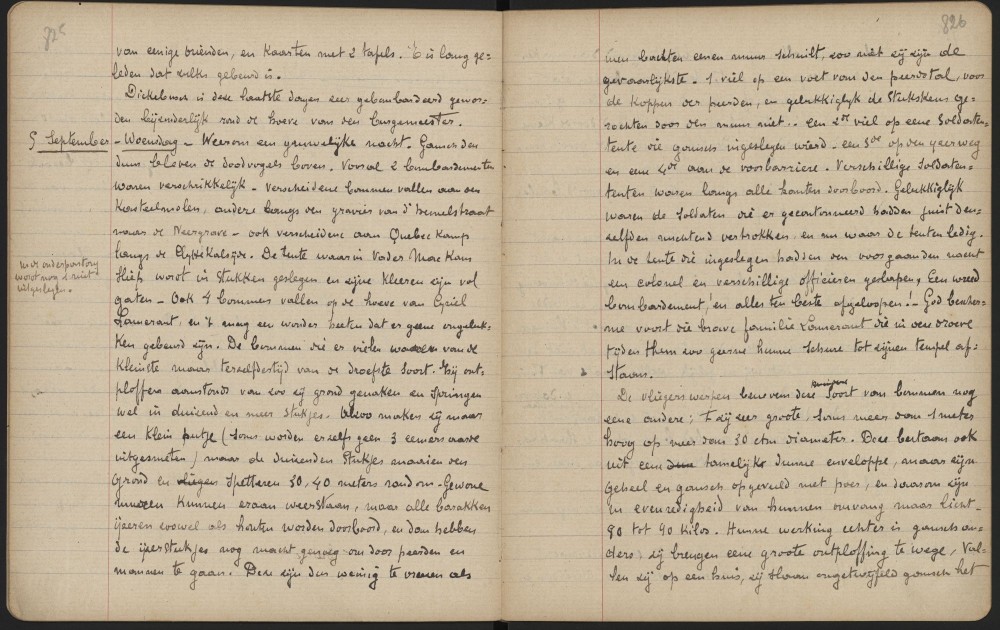 825
van eenige vrienden, en kaarten met 2 tafels. 't is lang ge=
leden dat zulks gebeurd is.
Dickebusch is deze laatste dagen zeer gebombardeerd gewor=
den bijzonderlijk rond de hoeve van den burgemeester.
5 September - Woensdag - Weerom een gruwelijke nacht. Gansch den
duur bleven de doodvogels boven. Vooral 2 bombardementen
waren verschrikkelijk - verscheidene bommen vallen aan den
Kasteelmolen, andere langs den gravier van d' hemelstraat
naar de Neergrave - ook verscheidene aan Quebec Kamp
langs de Elzekalsijde. De tente waarin Vader Mac
sliep wordt in stukken geslegen en zijne kleeren zijn vol
gaten - Ook 4 bommen vallen op de hoeve van Cyriel
Lamerant, en 't mag een wonder heeten dat er geene ongeluk=
ken gebeurd zijn. De bommen die er vielen waren van de
kleinste maar terzelfdertijd van de droefste soort. Zij ont=
ploffen aanstonds van zoo zij grond genaken en springen
wel in duizend en meer stukjes. Alzoo maken zij maar
een klein putje (soms worden er zelfs geen 3 eemers aarde
uitgesmeten) maar de duizenden stukjes maaien den
grond en vliegen spetteren 30, 40 meters rondom - Gewone
muren kunnen eraan weerstaan, maar alle barakken
ijzeren zoowel als houten worden doorboord, en dan hebben
de ijzerstukjes nog macht genoeg om door peerden en
mannen te gaan. Deze zijn dus weinig te vreezen als
in de onderpastory
wordt nog 2 ruiten
uitgeslegen.
826
men bachten eenen muur schuilt, zoo niet zij zijn de
gevaarlijkste. 1 viel op een voet van den peerdstal, voor
de koppen der peerden, en gelukkiglijk de stukskens ge=
rochten door den muur niet. - een 2de viel op eene soldaten=
tente die gansch ingeslegen wierd - een 3de op den geerweg
en eene 4de aan de voorbarriere. Verschillige soldaten=
tenten waren langs alle kanten doorboord. Gelukkiglijk
waren de soldaten die er gecantonneerd hadden juist den=
zelfden uchtend vertrokken en nu waar de tenten ledig.
In de tente die ingeslegen hadden den voorgaanden nacht
een colonel en verschillige officieren geslapen. Een wreed
bombardement, en alles ten beste afgeloopen! - God bescher=
me voort die brave familie Lamerant die in deze droeve
tijden Hem zoo geerne hunne schure tot zijnen tempel af=
staan.
De vliegers werpen benevens deze soort van bommen nog
eene andere; 't zij zeer groote, soms meer dan 1 meter
hoog op meer dan 30 ctm diameter. Deze bestaan ook
uit een dun tamelijk dunne enveloppe, maar zijn
geheel en gansch opgevuld met poer, en daarom zijn
in evenredigheid van hunnen omvang maar licht -
80 tot 90 kilos. Hunne werking echter is gansch an=
ders: zij brengen eene groote ontploffing te wege, Val=
len zij op een huis, zij slaan ongetwijfeld gansch het